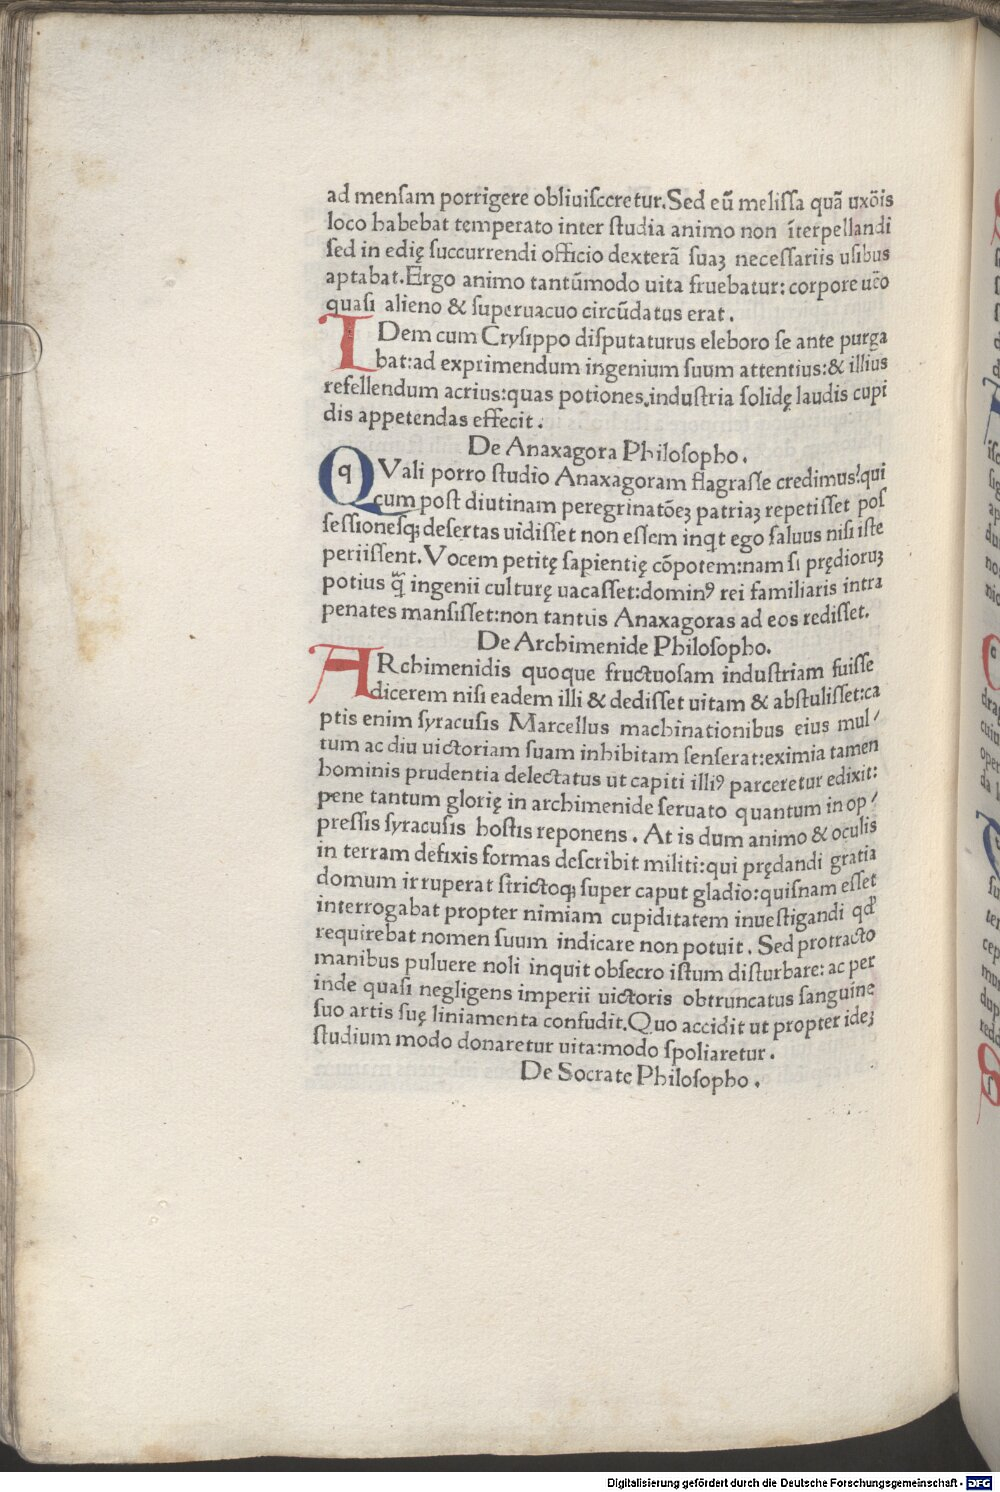 ad menſam porrigere obliuiſceretur.Sed eū meliſſa quā uxōis
loco habebat temperato inter ſtudia animo non īterpellandi
ſed in edię ſuccurrendi officio dexterā ſuaꝫ neceſſariis uſibus
aptabat.Ergo animo tantūmodo uita fruebatur: corpore ūo
quaſi alieno & ſuperuacuo circūdatus erat.
IDem cum Cryſippo diſputaturus eleboro ſe ante purga
bat:ad exprimendum ingenium ſuum attentius:& illius
refellendum acrius:quas potiones.induſtria ſolidę laudis cupi
dis appetendas effecit.
De Anaxagora Philoſopho.
QVali porro ſtudio Anaxagoram flagraſſe credimus?qui
cum poſt diutinam peregrinatōeꝫ patriaꝫ repetiſſet poſ
ſeſſioneſqꝫ deſertas uidiſſet non eſſem inqt ego ſaluus niſi iſte
periiſſent.Vocem petitę ſapientię cōpotem:nam ſi prędioruꝫ
potius q̄ ingenii culturę uacaſſet:dominꝰ rei familiaris intra
penates manſiſſet:non tantus Anaxagoras ad eos rediſſet.
De Archimenide Philoſopho.
ARchimenidis quoque fructuoſam induſtriam fuiſſe
dicerem niſi eadem illi & dediſſet uitam & abſtuliſſet:ca
ptis enim ſyracuſis Marcellus machinationibus eius mul/
tum ac diu uictoriam ſuam inhibitam ſenſerat:eximia tamen
hominis prudentia delectatus ut capiti illiꝰ parceretur edixit:
pene tantum glorię in archimenide ſeruato quantum in op/
preſſis ſyracuſis hoſtis reponens. At is dum animo & oculis
in terram defixis formas deſcribit militi:qui prędandi gratia
domum irruperat ſtrictoqꝫ ſuper caput gladio:quiſnam eſſet
interrogabat propter nimiam cupiditatem inueſtigandi qđ
requirebat nomen ſuum indicare non potuit. Sed protracto
manibus puluere noli inquit obſecro iſtum diſturbare: ac per
inde quaſi negligens imperii uictoris obtruncatus ſanguine
ſuo artis ſuę liniamenta confudit.Quo accidit ut propter ideꝫ
ſtudium modo donaretur uita:modo ſpoliaretur.
De Socrate Philoſopho.
Digitalisierung gefördert durch die Deutsche Forschungsgemeinschaft - DFG